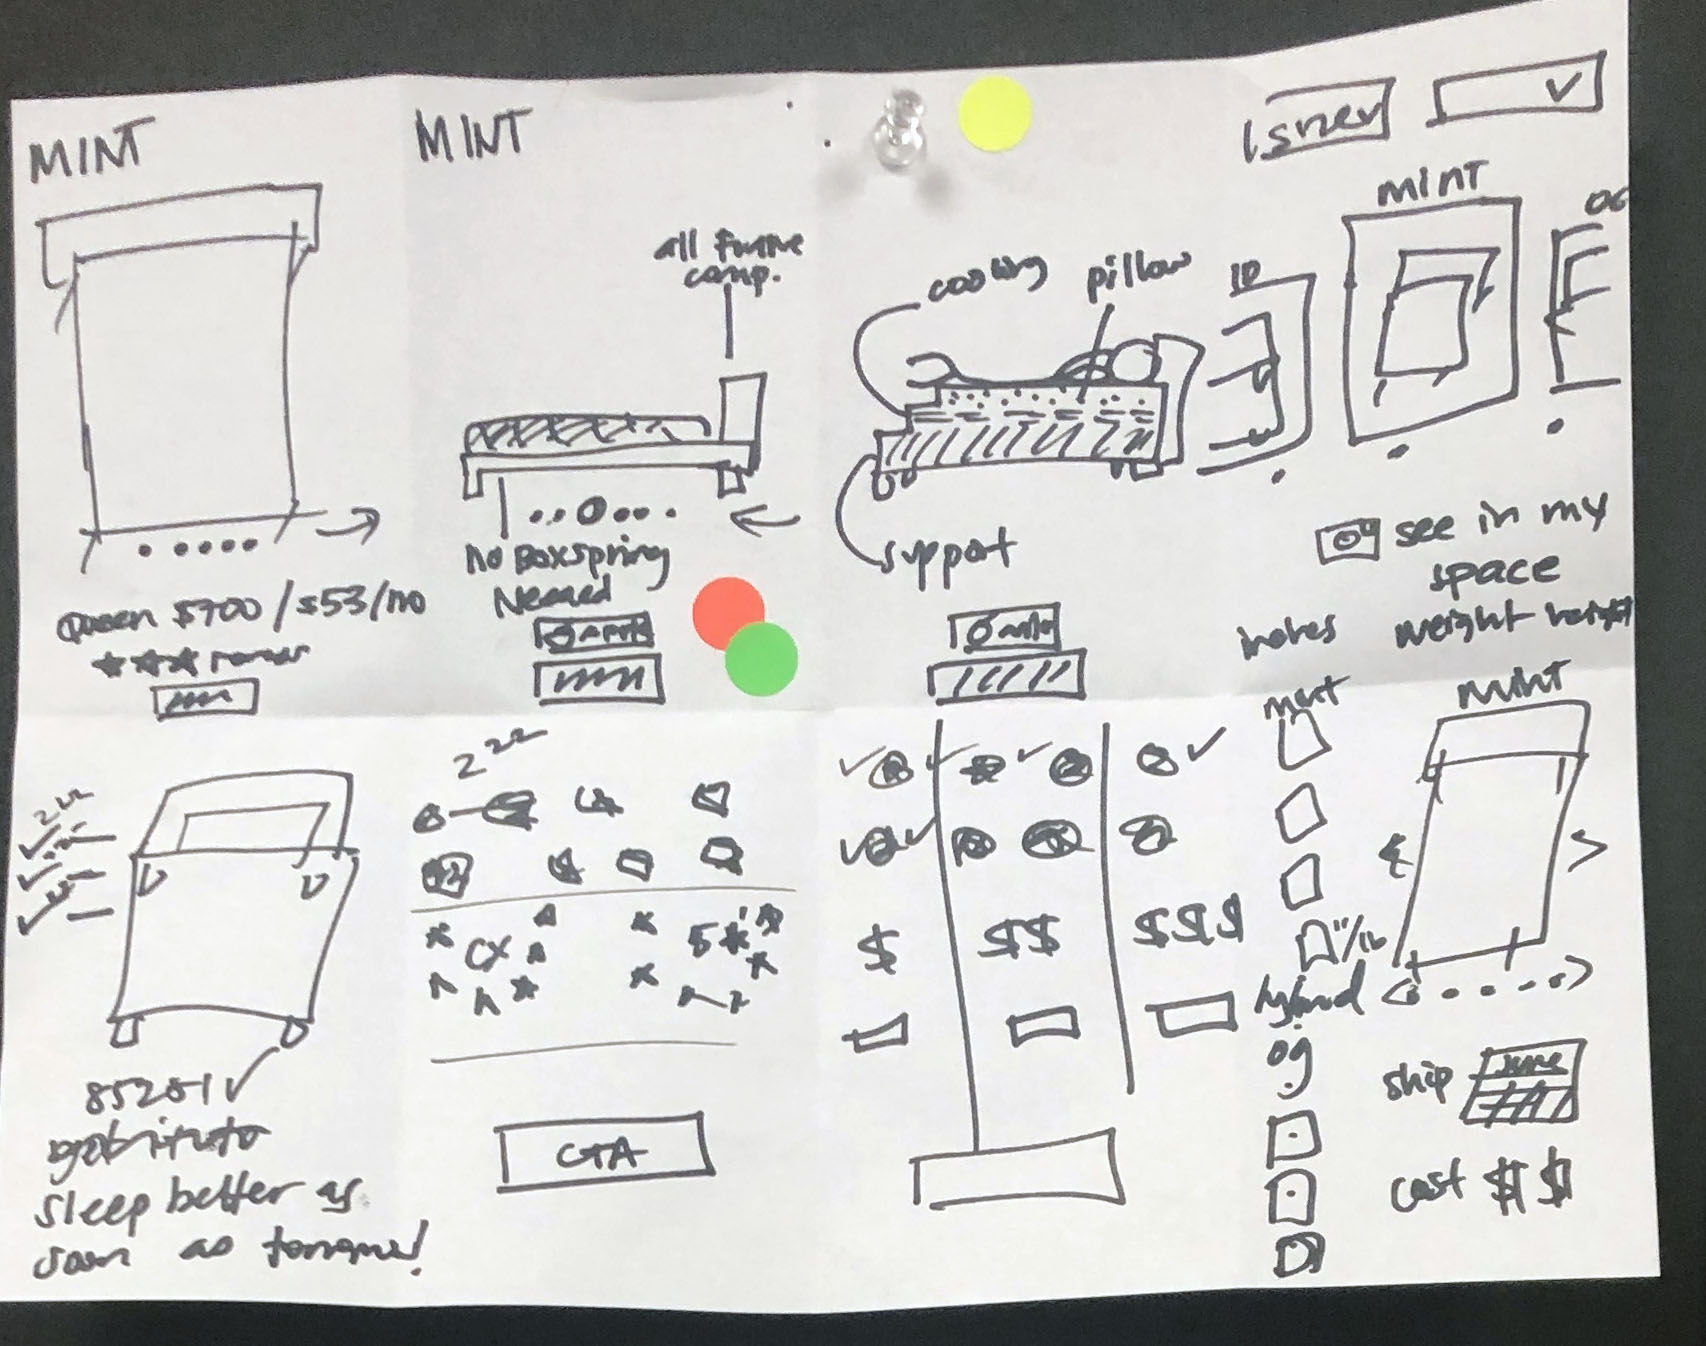 MINT
Queen $700 / $53/mo
MINT
all
comp.
no Boxspring
Needed
cooling
pillow
support
10
mint
OG
see in my
space
inches
weight height
zzz
85251
sleep better as
soon as
zzz
CX
5
CTA
$
$$
$$$
mint
hybrid
og
mint
ship
cost $$